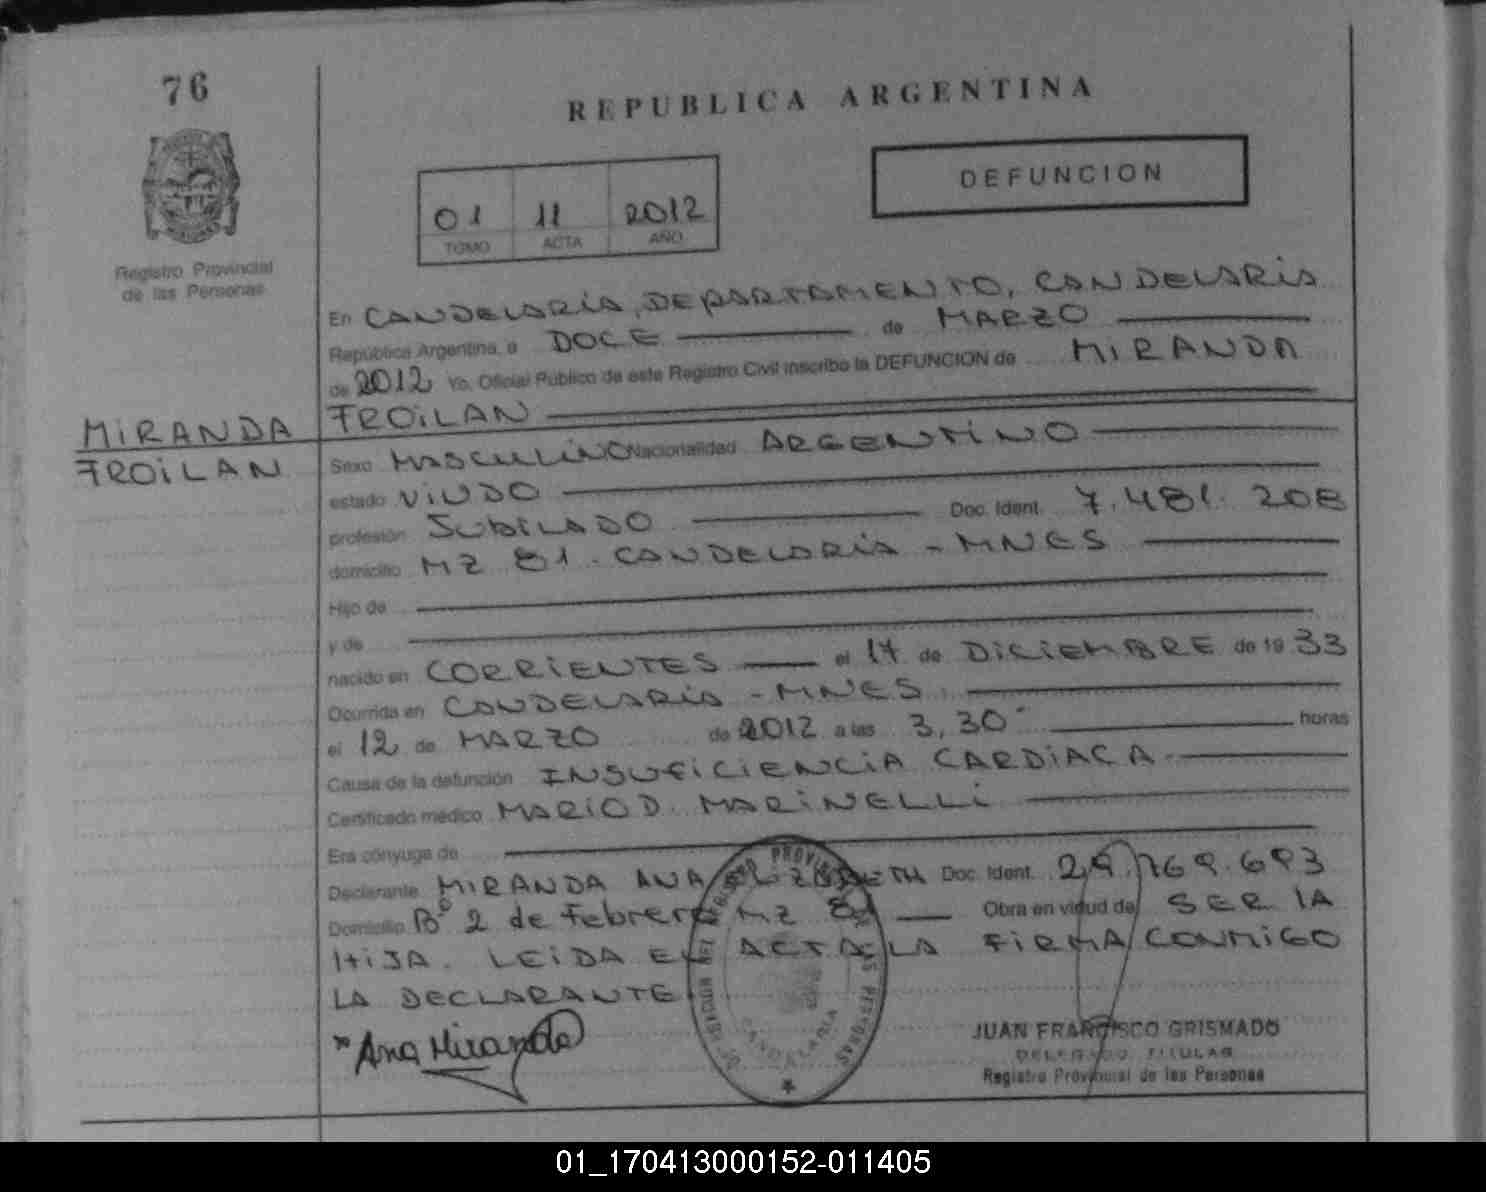 76
REPUBLICA ARGENTINA
DEFUNCION
01 11 2012
TOMO ACTA AÑO
Registro Provincial
de las Personas
En CANDELARIA, DEPARTAMENTO, CANDELARIA
República Argentina, a DOCE de MARZO
de 2012 Yo, Oficial Público de este Registro Civil inscribo la DEFUNCION de MIRANDA
FROILAN
MIRANDA
FROILAN
Sexo MASCULINO Nacionalidad ARGENTINO
estado VIUDO
profesión JUBILADO Doc. Ident. 7.481.208
domicilio MZ 81. CANDELARIA - MNES
Hijo de
y de
nacido en CORRIENTES el 14 de DICIEMBRE de 19 33
Ocurrida en CANDELARIA - MNES
el 12 de MARZO de 2012 a las 3,30 horas
Causa de la defunción INSUFICIENCIA CARDIACA
Certificado médico MARIO D. MARINELLI
Era cónyuge de
Declarante MIRANDA ANA ELIZABETH Doc. Ident. 29.769.693
Domicilio Bº 2 de Febrero MZ 81 Obra en virtud de SER LA
HIJA. LEIDA EL ACTA LA FIRMA CONMIGO
LA DECLARANTE
Ana Miranda
CANDELARIA
JUAN FRANCISCO GRISMADO
DELEGADO TITULAR
Registro Provincial de las Personas
01_170413000152-011405